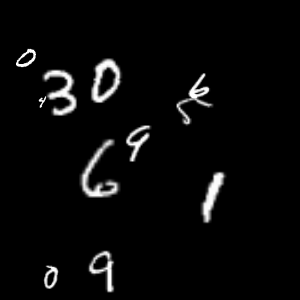 0
3 0
4
6
5
9
6
1
0 9